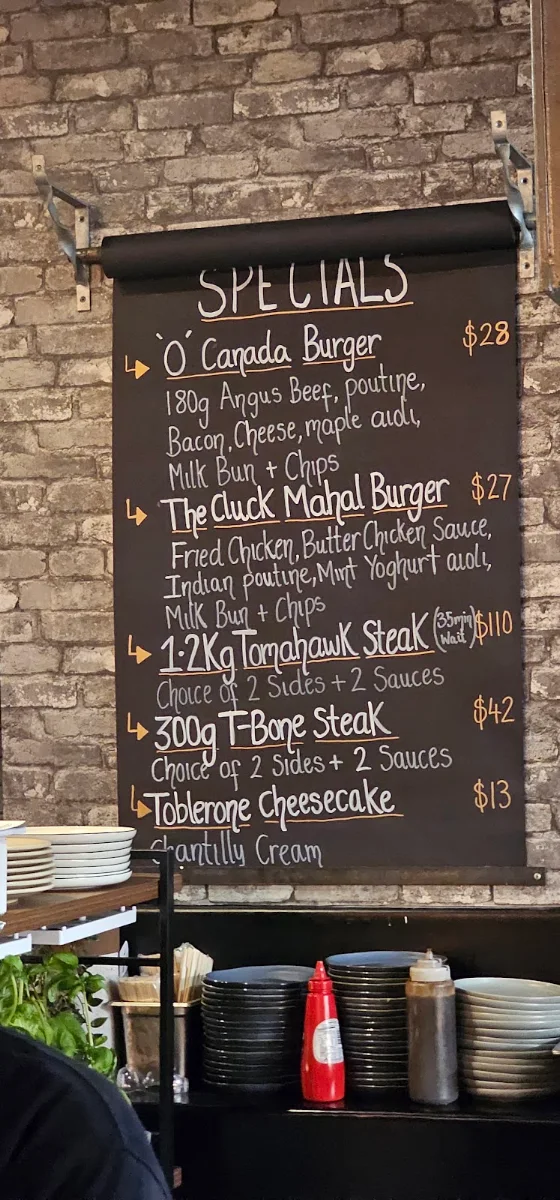 SPECIALS
'O' Canada Burger $28
180g Angus Beef, poutine,
Bacon, Cheese, maple aioli,
Milk Bun + Chips
The Cluck Mahal Burger $27
Fried Chicken, Butter Chicken Sauce,
Indian poutine, Mint Yoghurt aioli,
Milk Bun + Chips
1.2Kg Tomahawk Steak (35min wait) $110
Choice of 2 Sides + 2 Sauces
300g T-Bone Steak $42
Choice of 2 Sides + 2 Sauces
Toblerone Cheesecake $13
Chantilly Cream